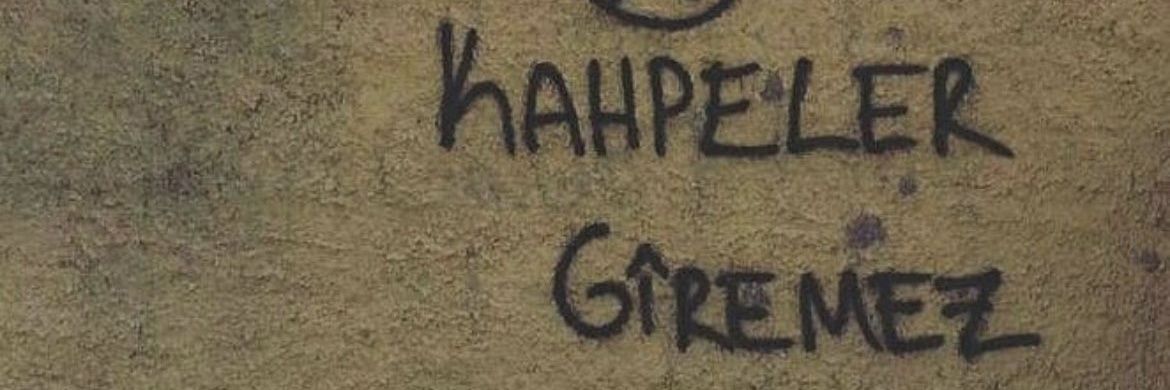 KAHPELER
GÎREMEZ